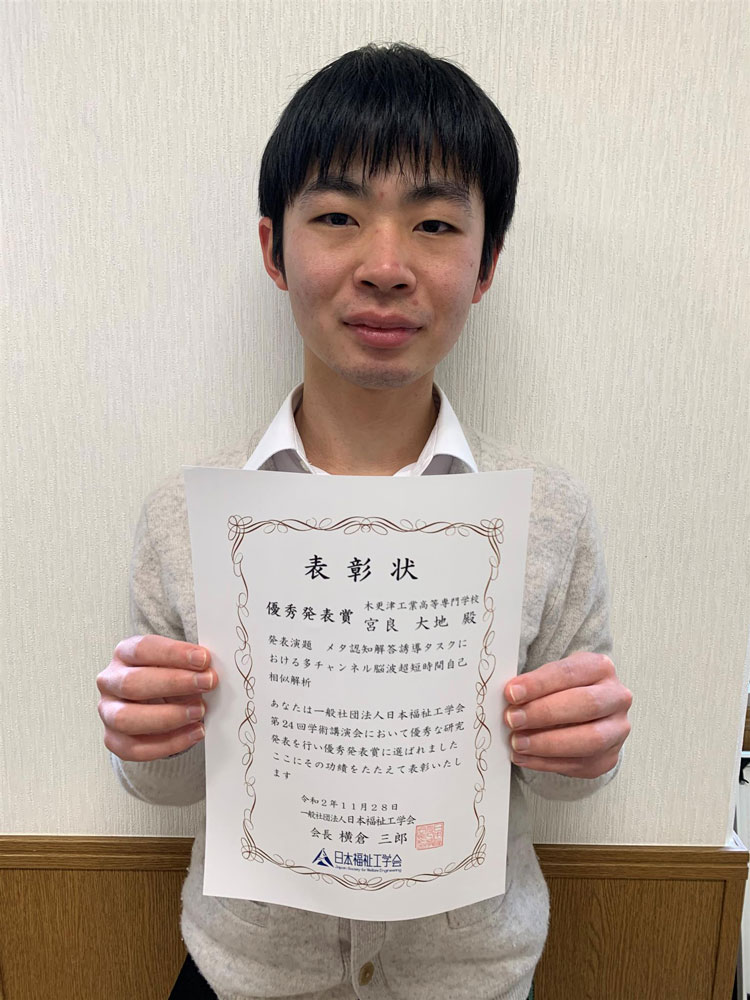 表彰状
木更津工業高等専門学校
優秀発表賞 宮良 大地 殿
発表演題 メタ認知解答誘導タスクに
おける多チャンネル脳波超短時間自己
相似解析
あなたは一般社団法人日本福祉工学会
第24回学術講演会において優秀な研究
発表を行い優秀発表賞に選ばれました
ここにその功績をたたえて表彰いたし
ます
令和2年11月28日
一般社団法人日本福祉工学会
会長 横倉 三郎
日本福祉工学会
Japan Society for Welfare Engineering